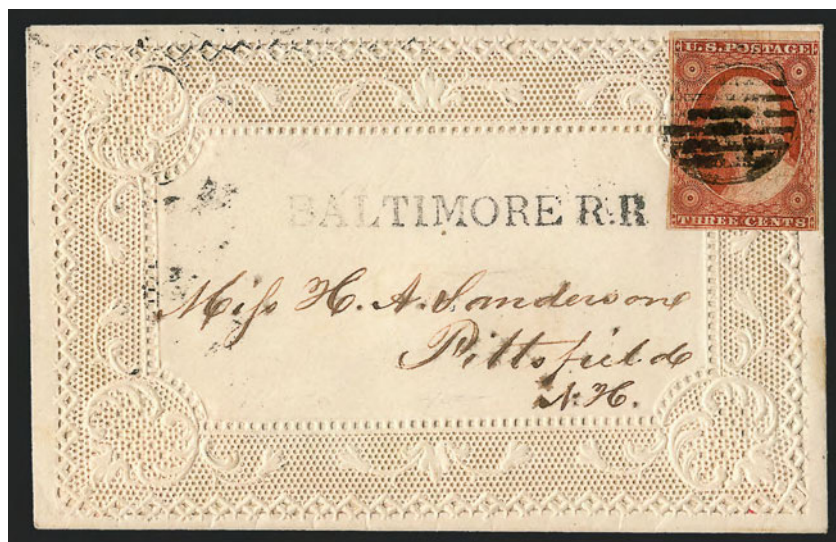 U.S. POSTAGE
THREE CENTS
BALTIMORE R.R
Miss H. A. Sanderson
Pittsfield
N. H.